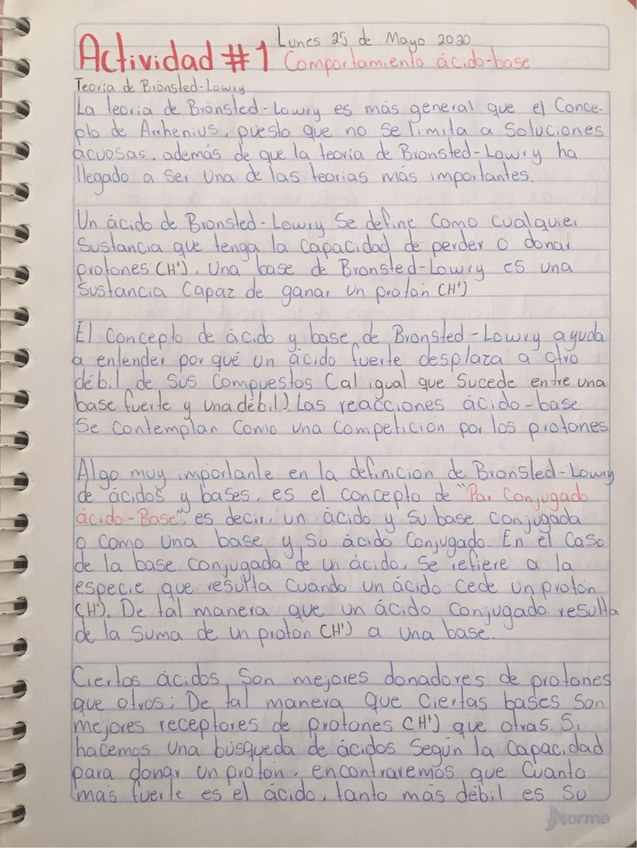 Lunes 25 de Mayo 2020
Actividad #1 Comportamiento ácido-base
Teoría de Brönsted-Lowry
La teoría de Bronsted-Lowry es más general que el Conce-
pto de Arrhenius, puesto que no se limita a Soluciones
acuosas, además de que la teoría de Bronsted-Lowry ha
llegado a ser una de las teorías más importantes.
Un ácido de Bronsted-Lowry Se define Como cualquier
Sustancia que tenga la capacidad de perder o donar
protones (H⁺). Una base de Bronsted-Lowry es una
Sustancia Capaz de ganar un protón (H⁺)
El concepto de ácido y base de Bronsted-Lowry ayuda
a entender por qué un ácido fuerte desplaza a otro
débil de sus Compuestos (al igual que Sucede entre una
base fuerte y una débil) Las reacciones ácido-base
Se contemplan Como una competición por los protones
Algo muy importante en la definición de Bronsted-Lowry
de ácidos y bases, es el concepto de "Par Conjugado
ácido-Base", es decir, un ácido y Su base conjugada
o como una base y Su ácido Conjugado. En el Caso
de la base conjugada de un ácido, Se refiere a la
especie que resulta Cuando un ácido cede un protón
(H⁺). De tal manera que un ácido Conjugado resulta
de la Suma de un protón (H⁺) a una base.
Ciertos ácidos Son mejores donadores de protones
que otros; De tal manera que Ciertas bases Son
mejores receptores de protones (H⁺) que otras. Si
hacemos una búsqueda de ácidos Según la Capacidad
para donar un protón, encontraremos que Cuanto
más fuerte es el ácido, tanto más débil es Su
Norma